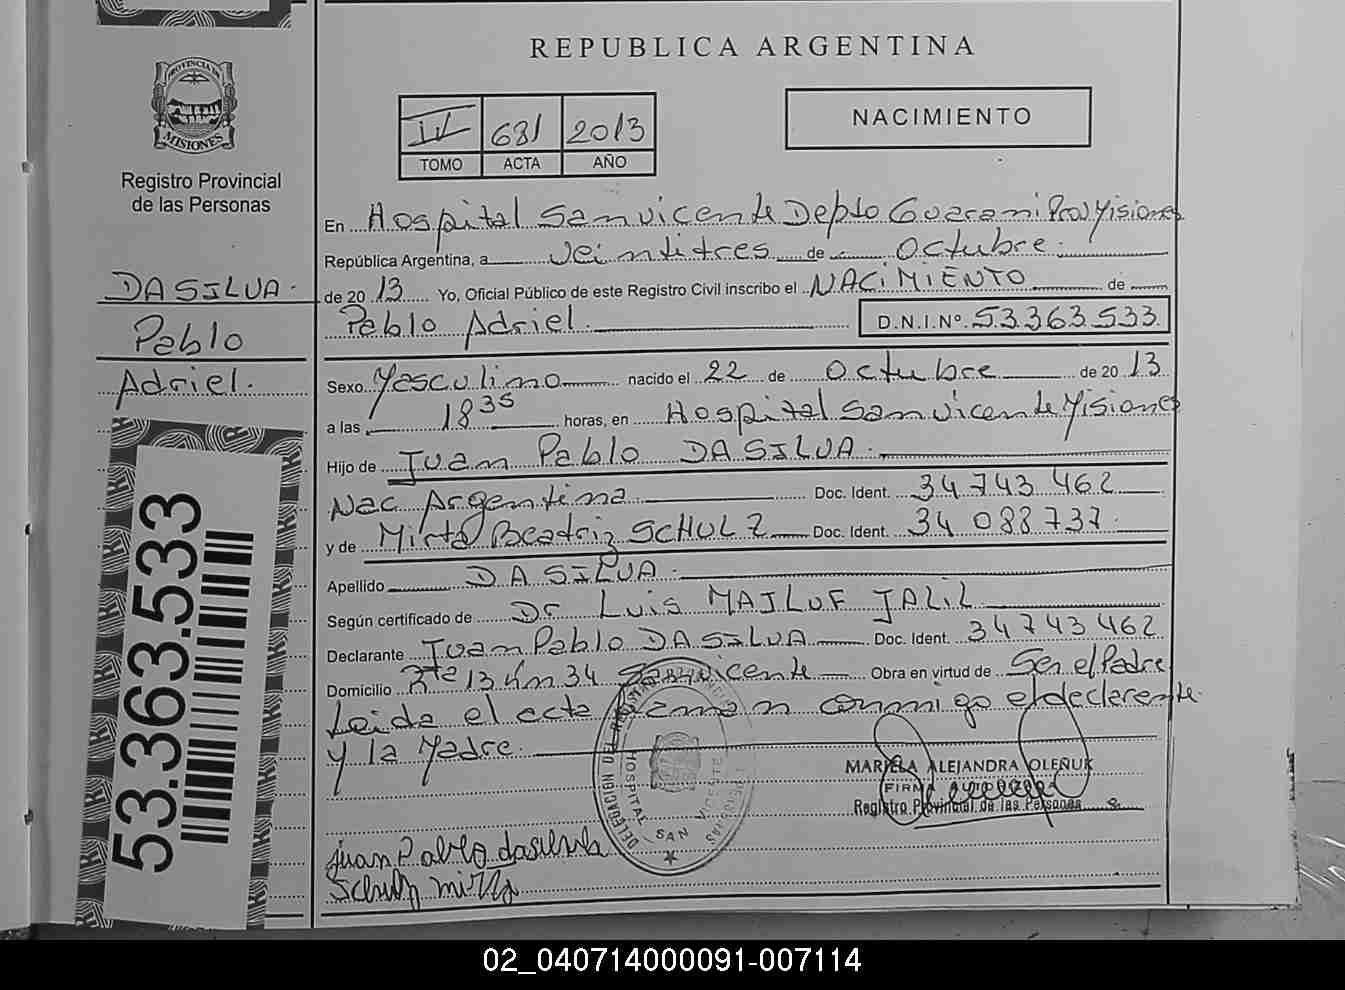 REPUBLICA ARGENTINA
PROVINCIA DE
MISIONES
Registro Provincial
de las Personas
DA SILVA.
Pablo
Adriel.
53.363.533
III 681 2013
TOMO ACTA AÑO
NACIMIENTO
En Hospital San vicente Depto Guarani Prov Misiones
República Argentina, a veintitres de octubre.
de 2013 Yo, Oficial Público de este Registro Civil inscribo el NACIMIENTO de
Pablo Adriel. D.N.I.Nº 53.363.533.
Sexo Masculino nacido el 22 de octubre de 2013
a las 18 35 horas, en Hospital San vicente Misiones
Hijo de Juan Pablo DA SILVA.
Nac Argentina Doc. Ident. 34 743 462
y de Mirta Beatriz SCHULZ Doc. Ident. 34 088 737.
Apellido DA SILVA.
Según certificado de Dr Luis MAJLUF JALIL
Declarante Juan Pablo DA SILVA Doc. Ident. 34743462
Domicilio Rta 13 Km 34 San vicente Obra en virtud de Ser el Padre
Leida el acta firman conmigo el declarante
y la Madre.
DELEGACION HOSPITAL SAN VICENTE MISIONES
MARIELA ALEJANDRA OLEÑUK
FIRMA AUTORIZADA
Registro Provincial de las Personas
juan Pablo dasilva
Schulz mirta
02_040714000091-007114